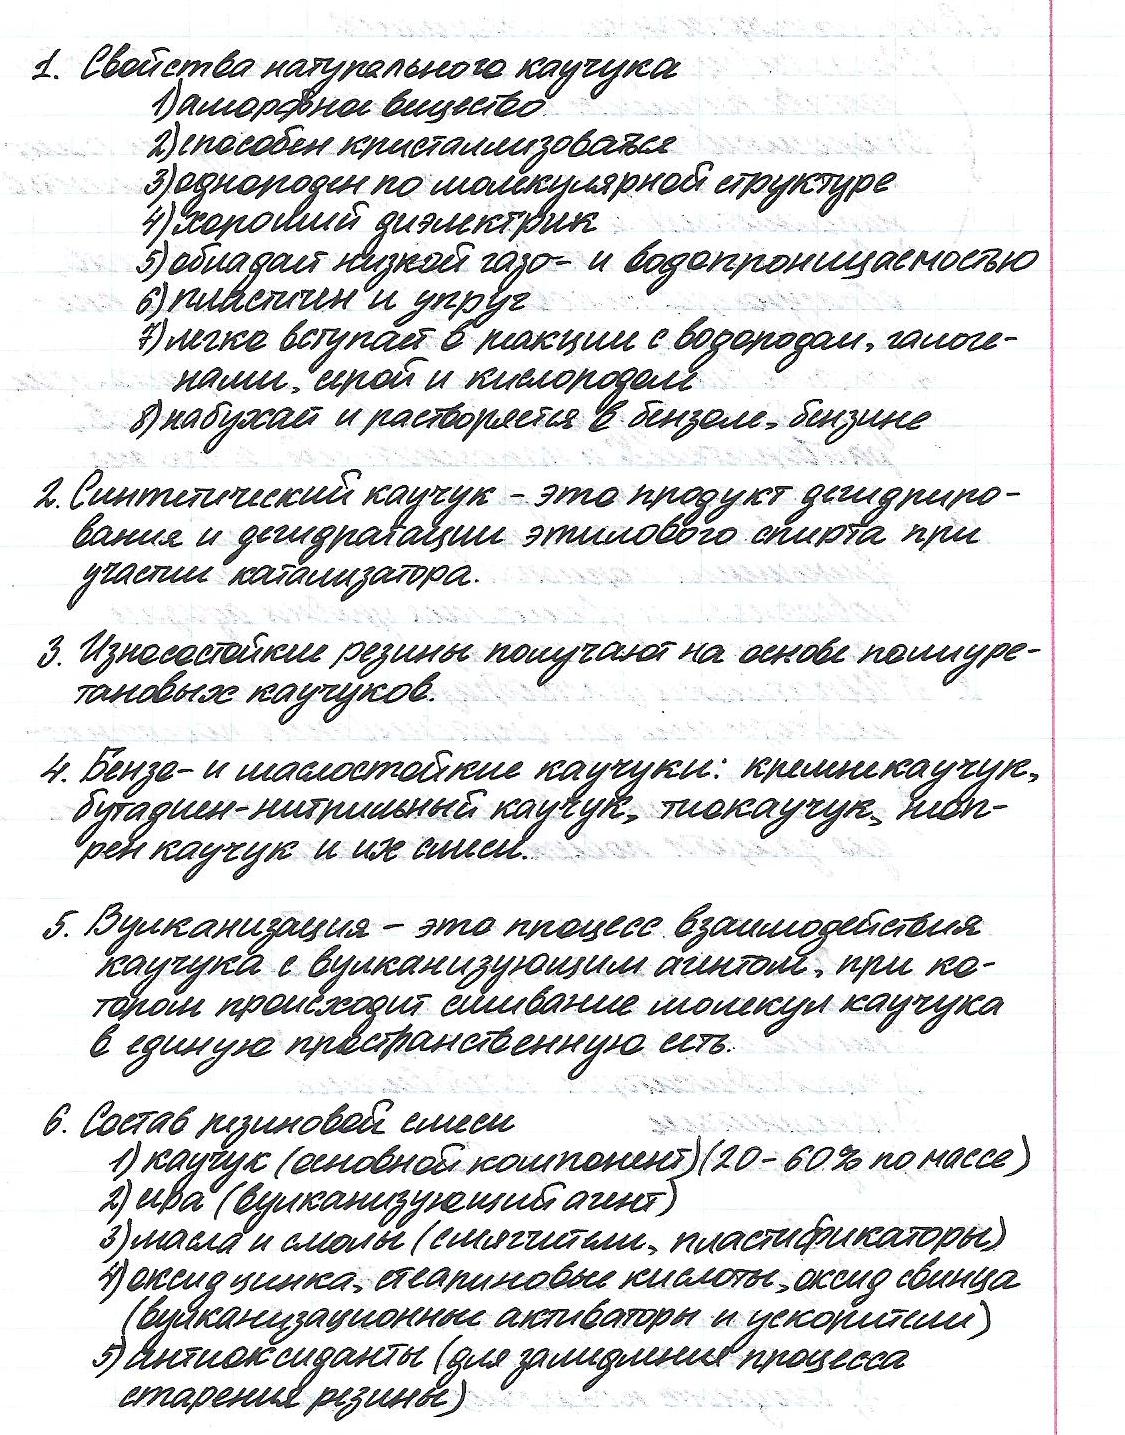 1. Свойства натурального каучука
1) аморфное вещество
2) способен кристаллизоваться
3) однороден по молекулярной структуре
4) хороший диэлектрик
5) обладает низкой газо- и водопроницаемостью
6) пластичен и упруг
7) легко вступает в реакции с водородом, галоге-
нами, серой и кислородом
8) набухает и растворяется в бензоле, бензине
2. Синтетический каучук - это продукт дегидриро-
вания и дегидратации этилового спирта при
участии катализатора.
3. Износостойкие резины получают на основе полиуре-
тановых каучуков.
4. Бензо- и маслостойкие каучуки: кремнекаучук,
бутадиен-нитрильный каучук, тиокаучук, неоп-
рен каучук и их смеси.
5. Вулканизация - это процесс взаимодействия
каучука с вулканизующим агентом, при ко-
тором происходит сшивание молекул каучука
в единую пространственную сеть.
6. Состав резиновой смеси
1) каучук (основной компонент) (20-60% по массе)
2) сера (вулканизующий агент)
3) масла и смолы (смягчители, пластификаторы)
4) оксид цинка, стеариновые кислоты, оксид свинца
(вулканизационные активаторы и ускорители)
5) антиоксиданты (для замедления процесса
старения резины)